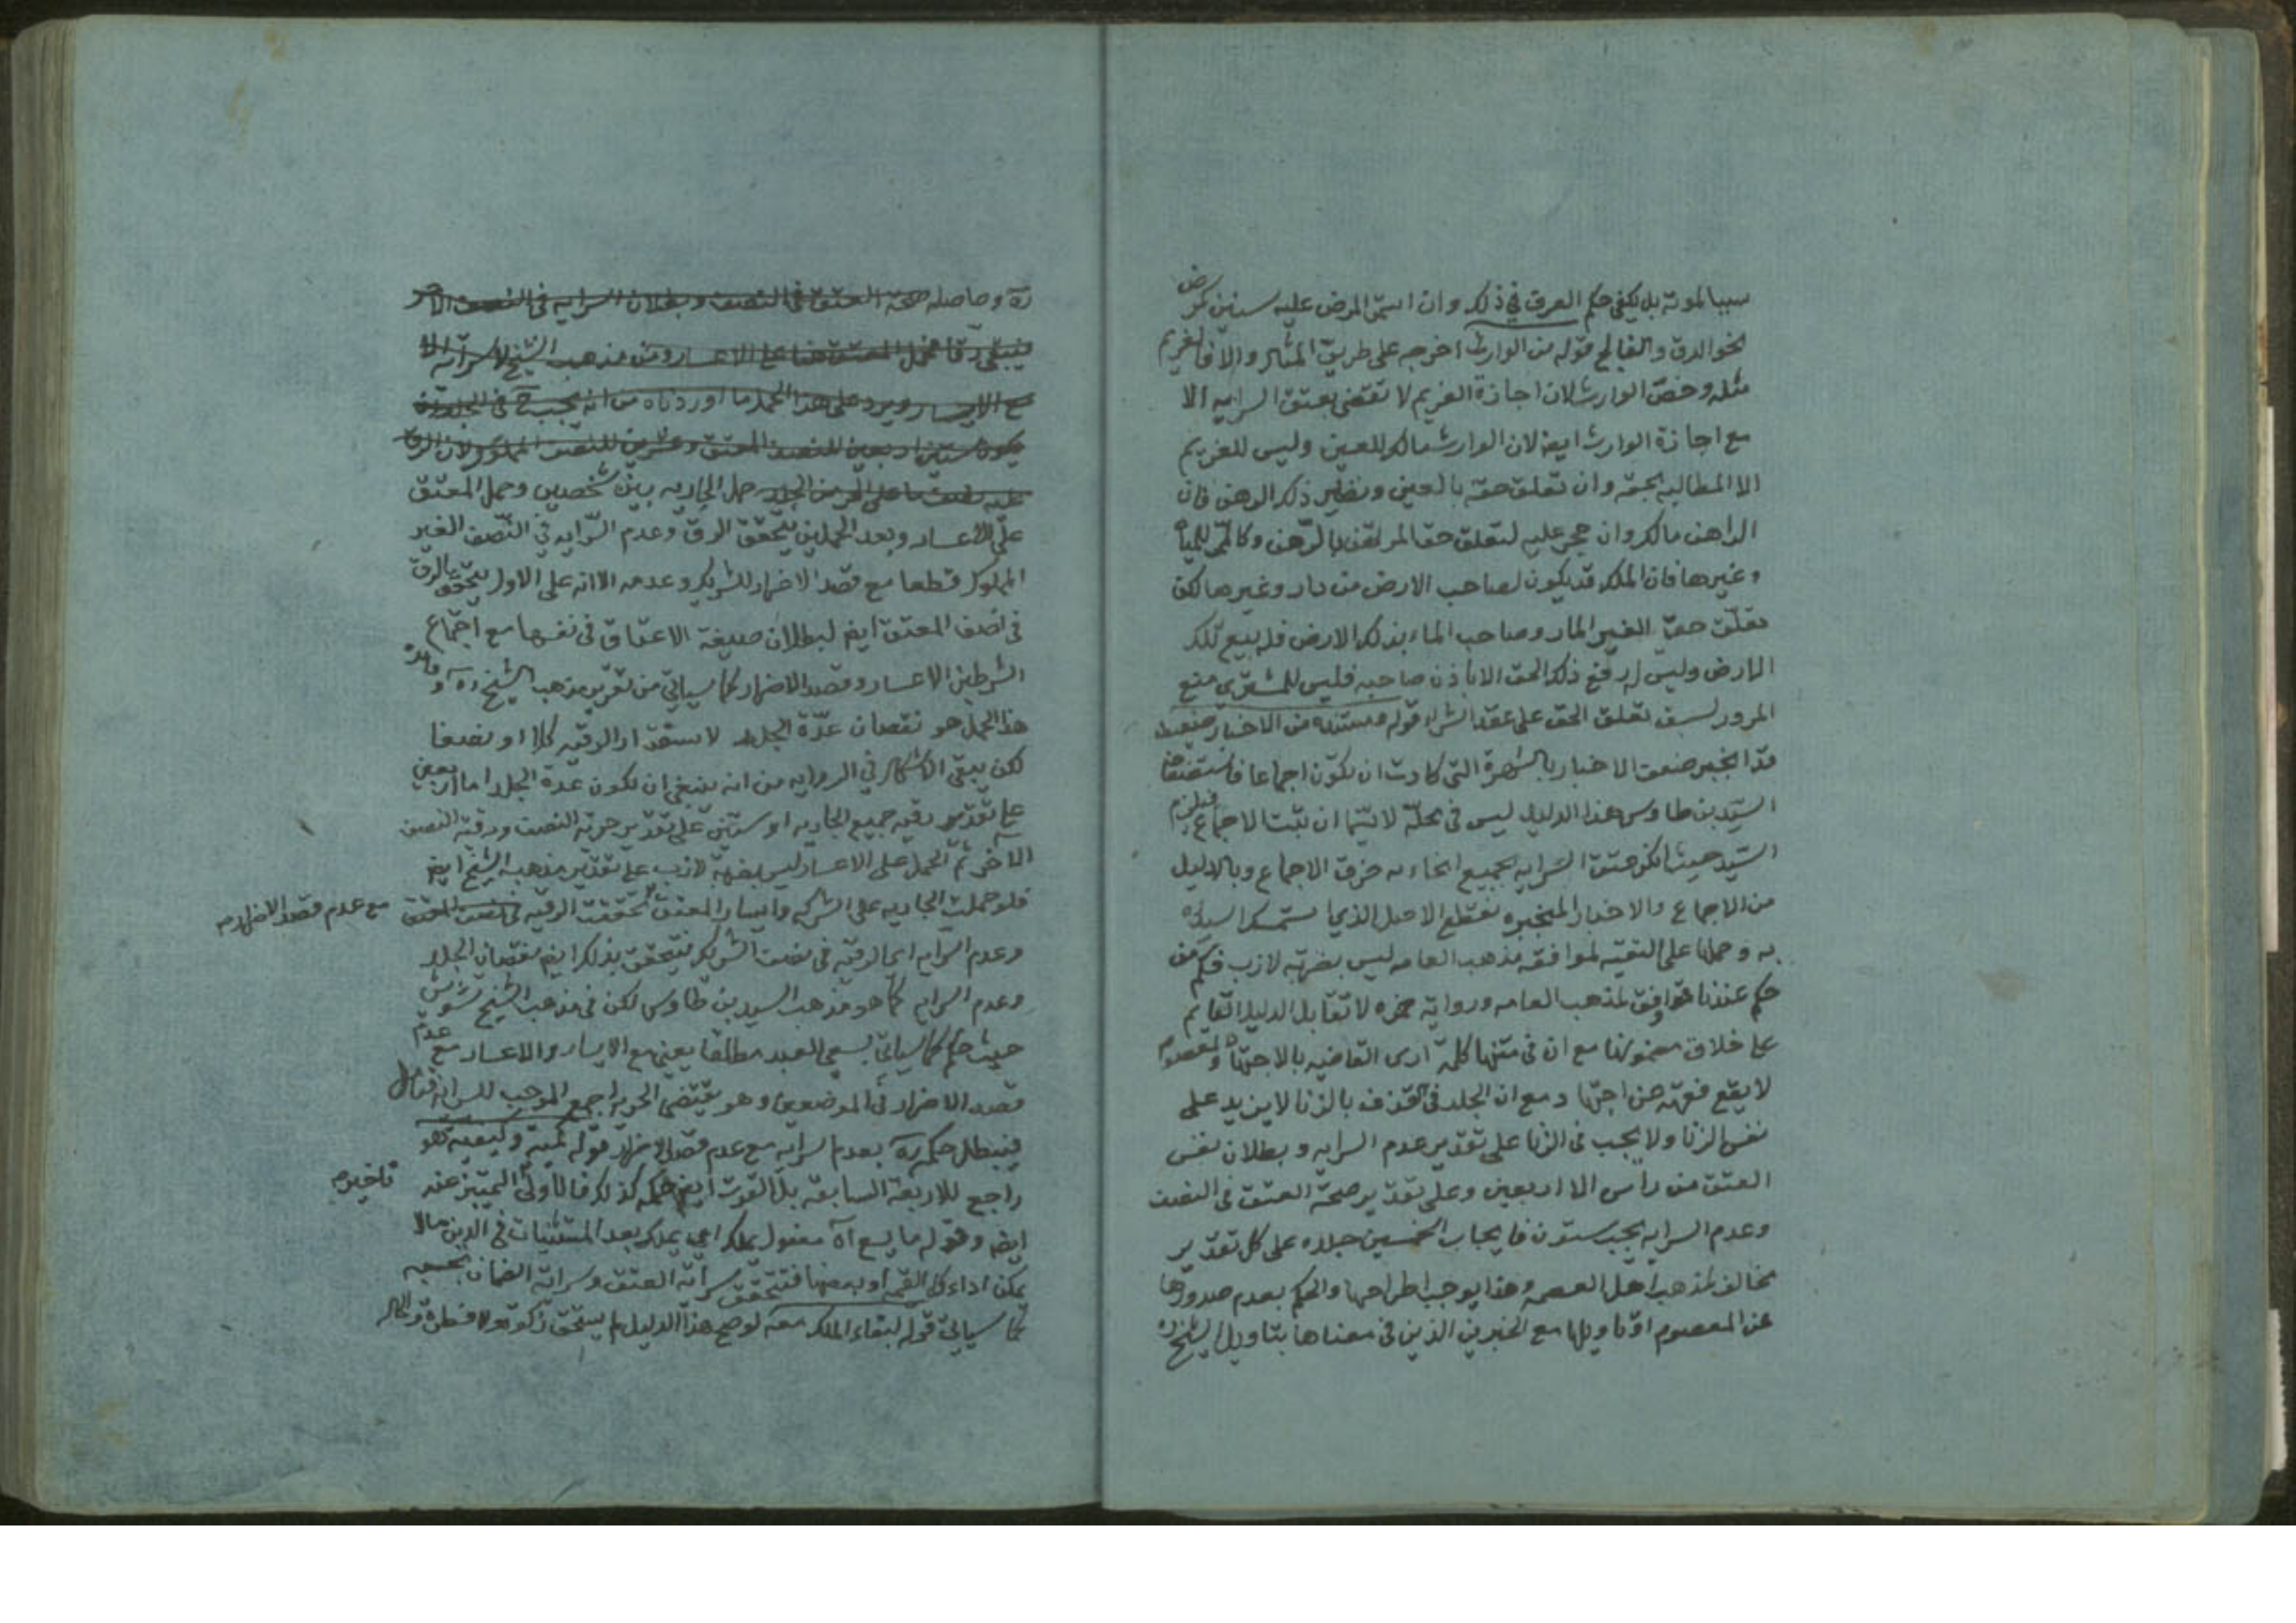 سببا لموته بل يكفي حكم العرف في ذلك وان استمر المرض عليه سنين كمرض
نحو الدق والفالج قوله من الوارث اخرجه على طريق المثال والا فالغريم
مثله وخص الوارث لان اجازة الغريم لا تقتضي بعتق السرايه الا
مع اجازة الوارث ايضا لان الوارث مالك للعين وليس للغريم
الا المطالبه بحقه وان تعلق حقه بالعين ونظير ذلك الرهن فان
الراهن مالك وان حجر عليه لتعلق حق المرتهن بالرهن وكالممر للمياه
وغيرها فان الملك قد يكون لصاحب الارض من دار وغيرها لكن
تعلق حق الغير المار وصاحب الماء بذلك الارض فله بيع تلك
الارض وليس له رفع ذلك الحق الا باذن صاحبه فليس للمشتري منع
المرور لسبق تعلق الحق على عقد الشراء قوله ومستنده من الاخبار ضعيف
قد انجبر ضعف الاخبار بالشهرة التي كادت ان تكون اجماعا فاستضعاف
السيد بن طاوس هذا الدليل ليس في محله لا سيما ان ثبت الاجماع فيلزم
السيد حيث انكر عتق السرايه بجميع انحاءه خرق الاجماع وبالدليل
من الاجماع والاخبار المنجبره نقطع الاصل الذي استمسك السيد ره
به وحملها على التقيه لموافقه مذهب العامه ليس بضربة لازب فكم من
حكم عندنا موافق لمذهب العامه ورواية حمزه لا تقابل الدليل القايم
على خلاف مضمونها مع ان في متنها كلمة ارى القاضيه بالاجتهاد والمعصوم
لا يقع فقهه عن اجتهاد ومع ان الجلد في القذف بالزنا لا يزيد على
نفس الزنا ولا يجب في الزنا على تقدير عدم السرايه وبطلان نفس
العتق من راس الا اربعين وعلى تقدير صحة العتق في النصف
وعدم السرايه يجب ستون فايجاب الخمسين جلده على كل تقدير
مخالف لمذهب اهل العصمه وهذا يوجب اطراحها والحكم بعدم صدورها
عن المعصوم او تاويلها مع الخبرين الذين في معناها بتاويل الشيخ ره
ره وحاصله صحة العتق في النصف وبطلان السرايه في النصف الاخر
فيبقى رقا فحمل المعتق هنا على الاعسار ومن مذهب الشيخ لا سراية الا
مع الايسار ويرد على هذا الحمل ما اوردناه من انه يجب ح في الجلد ان
يكون ستين اربعين للنصف المعتق وعشرين للنصف المملوك لان الرق
عليه نصف ما على الحر من الجلد حمل الجاريه بين شخصين وحمل المعتق
على الاعسار وبعد الحملين يتحقق الرق وعدم السرايه في النصف الغير
المملوك قطعا مع قصد الاضرار للشريك وعدمه الا انه على الاول يتحقق الرق
في نصف المعتق ايضا لبطلان صيغة الاعتاق في نفسها مع اجتماع
الشرطين الاعسار وقصد الاضرار كما سياتي من تقرير مذهب الشيخ ره وفائدة
هذا الحمل هو نقصان عدة الجلد لاستقرار الرقيه كلا او نصفا
لكن يبقى الاشكال في الروايه من انه ينبغي ان تكون عدة الجلد اما اربعين
على تقدير رقيه جميع الجاريه او ستين على تقدير حرية النصف ورقية النصف
الاخر ثم الحمل على الاعسار ليس بضربة لازب على تقدير مذهب الشيخ ايضا
فلو حملت الجاريه على الشركه وايسار المعتق تحققت الرقيه في نصف المعتق مع عدم قصد الاضرار صح
وعدم السرايه اي الرقيه في نصف الشريك فيتحقق بذلك ايضا نقصان الجلد
وعدم السرايه كما هو مذهب السيد بن طاوس لكن في مذهب الشيخ تشويش
حيث حكم كما سياتي بسعي العبد مطلقا يعني مع الايسار والاعسار مع عدم
قصد الاضرار في الموضعين وهو يقتضي الحريه اجمع الموجب للسرايه فتامل
فيبطل حكمه ره بعدم السرايه مع عدم قصد الاضرار قوله
راجع للاربعة السابقه بل القوت ايضا حكمه كذلك فالاولى التميز عنه تاخيره
ايضا وقوله ما يسع آه مفعول يملك اي يملك بعد المستثنيات في الدين مالا
يمكن اداء كل القيمه او بعضها فتتحقق سراية العتق وسراية الضمان بحسبه
كما سياتي قوله لبقاء الملك معه لو صح هذا الدليل لم يستحق زكوة ولا فطرة والحال